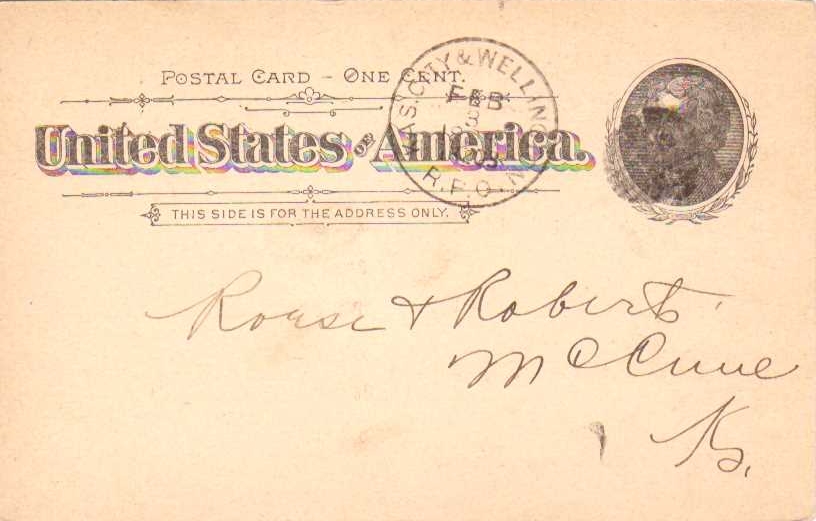 POSTAL CARD - ONE CENT.
United States OF America.
THIS SIDE IS FOR THE ADDRESS ONLY.
KAS. CITY & WELLINGTON
FEB
R.P.O.
& Roberts
McCune
Ks.